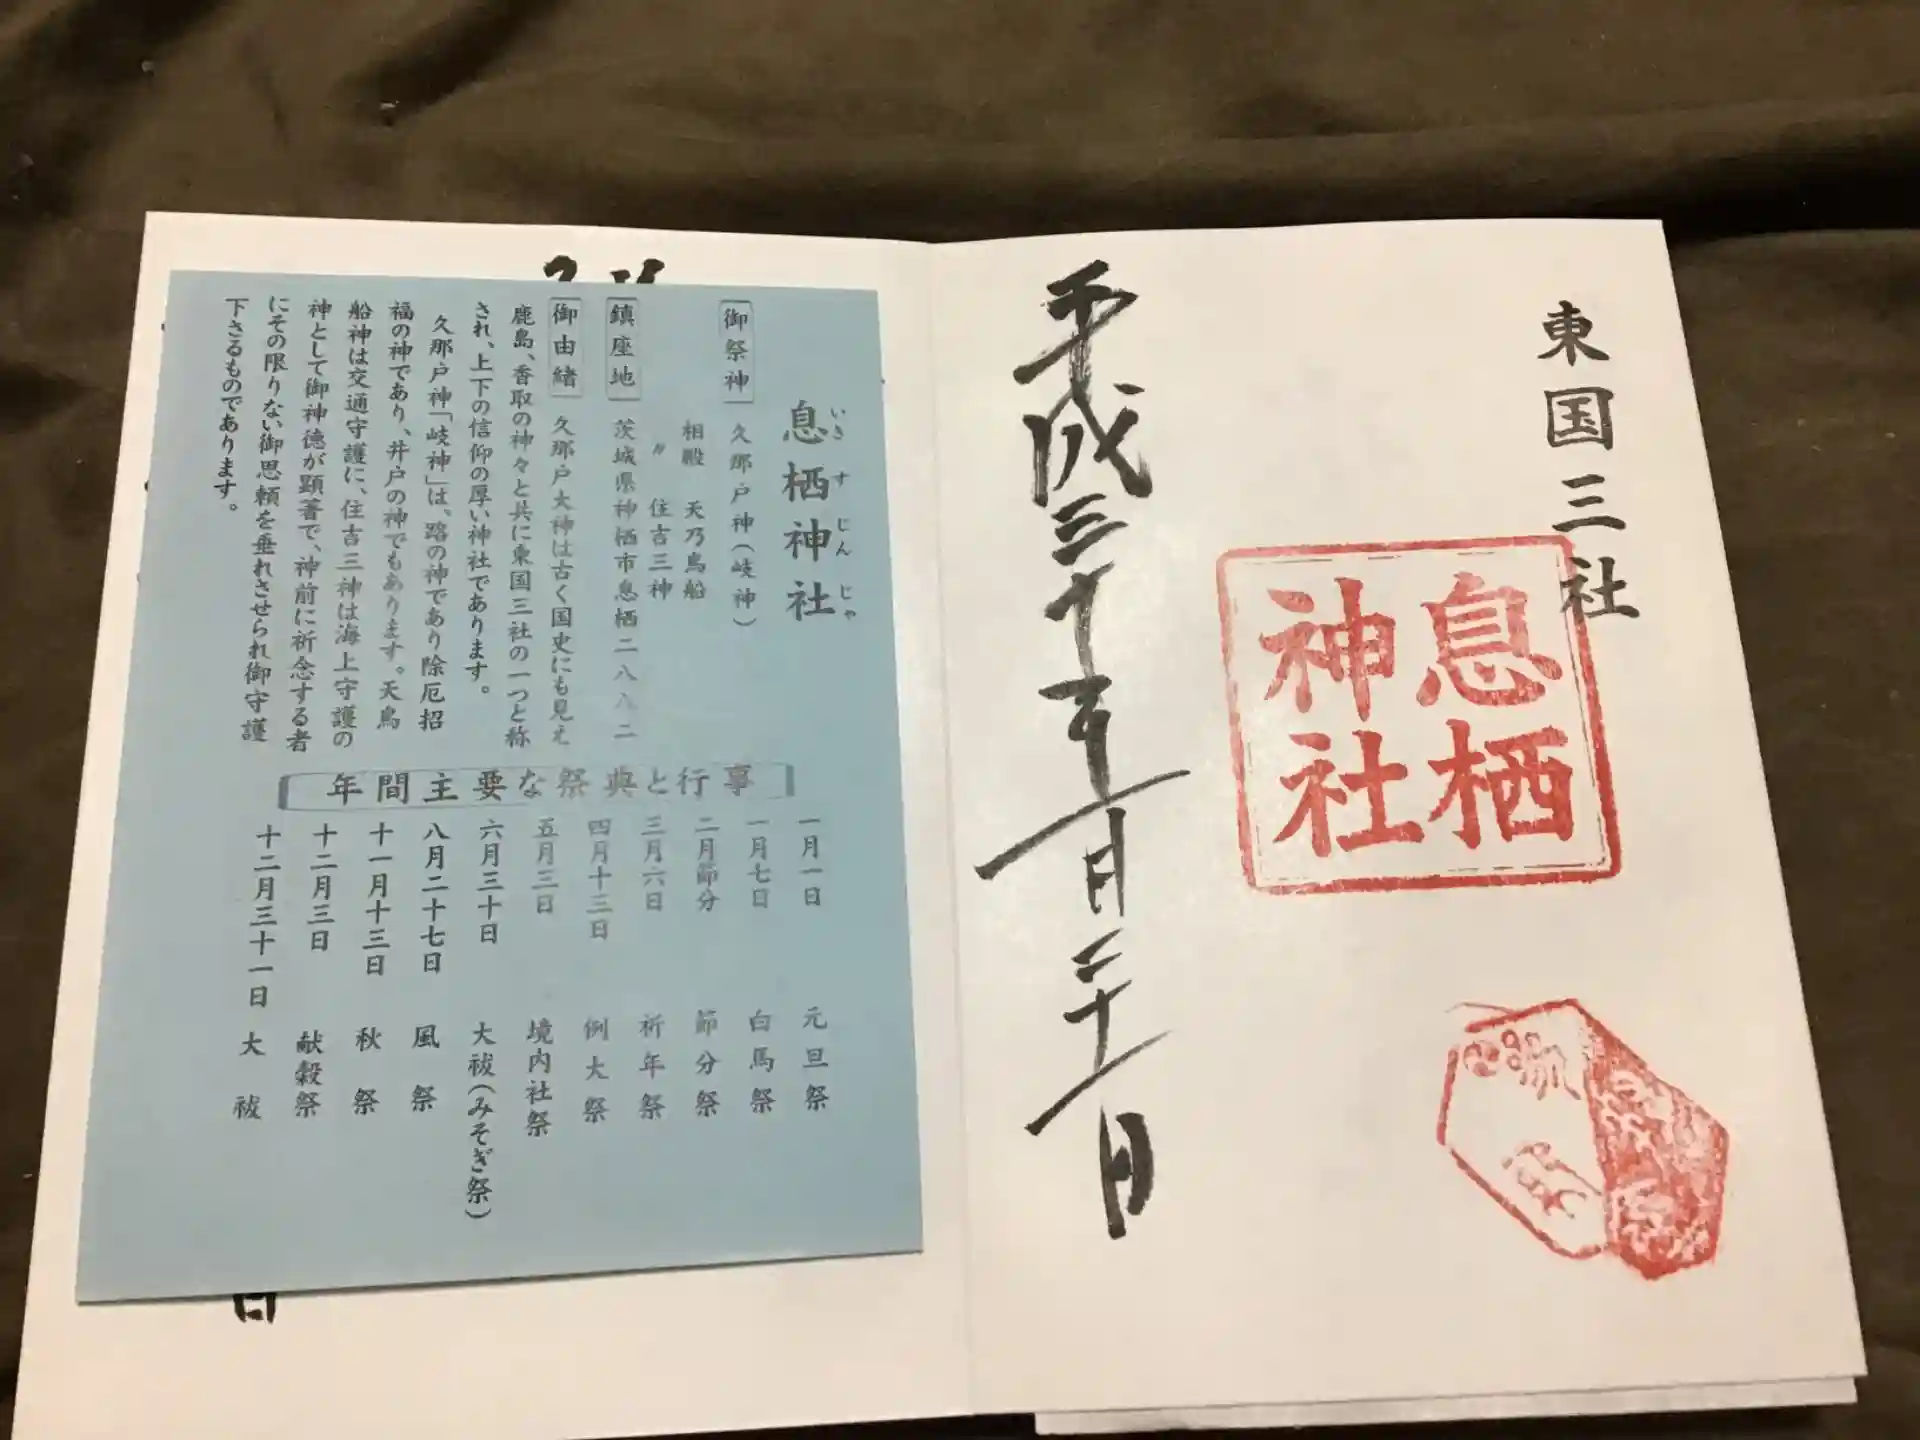 東国三社
息栖
神社
平成三十年一月二十一日
息栖神社
いきすじんじゃ
御祭神 久那戸神(岐神)
相殿 天乃鳥船
〃 住吉三神
鎮座地 茨城県神栖市息栖二八八二
御由緒 久那戸大神は古く国史にも見え
鹿島、香取の神々と共に東国三社の一つと称
され、上下の信仰の厚い神社であります。
久那戸神「岐神」は、路の神であり除厄招
福の神であり、井戸の神でもあります。天鳥
船神は交通守護に、住吉三神は海上守護の
神として御神徳が顕著で、神前に祈念する者
にその限りない御恩頼を垂れさせられ御守護
下さるものであります。
年間主要な祭典と行事
一月一日 元旦祭
一月七日 白馬祭
二月節分 節分祭
三月六日 祈年祭
四月十三日 例大祭
五月三日 境内社祭
六月三十日 大祓(みそぎ祭)
八月二十七日 風祭
十一月十三日 秋祭
十二月三日 献穀祭
十二月三十一日 大祓
日